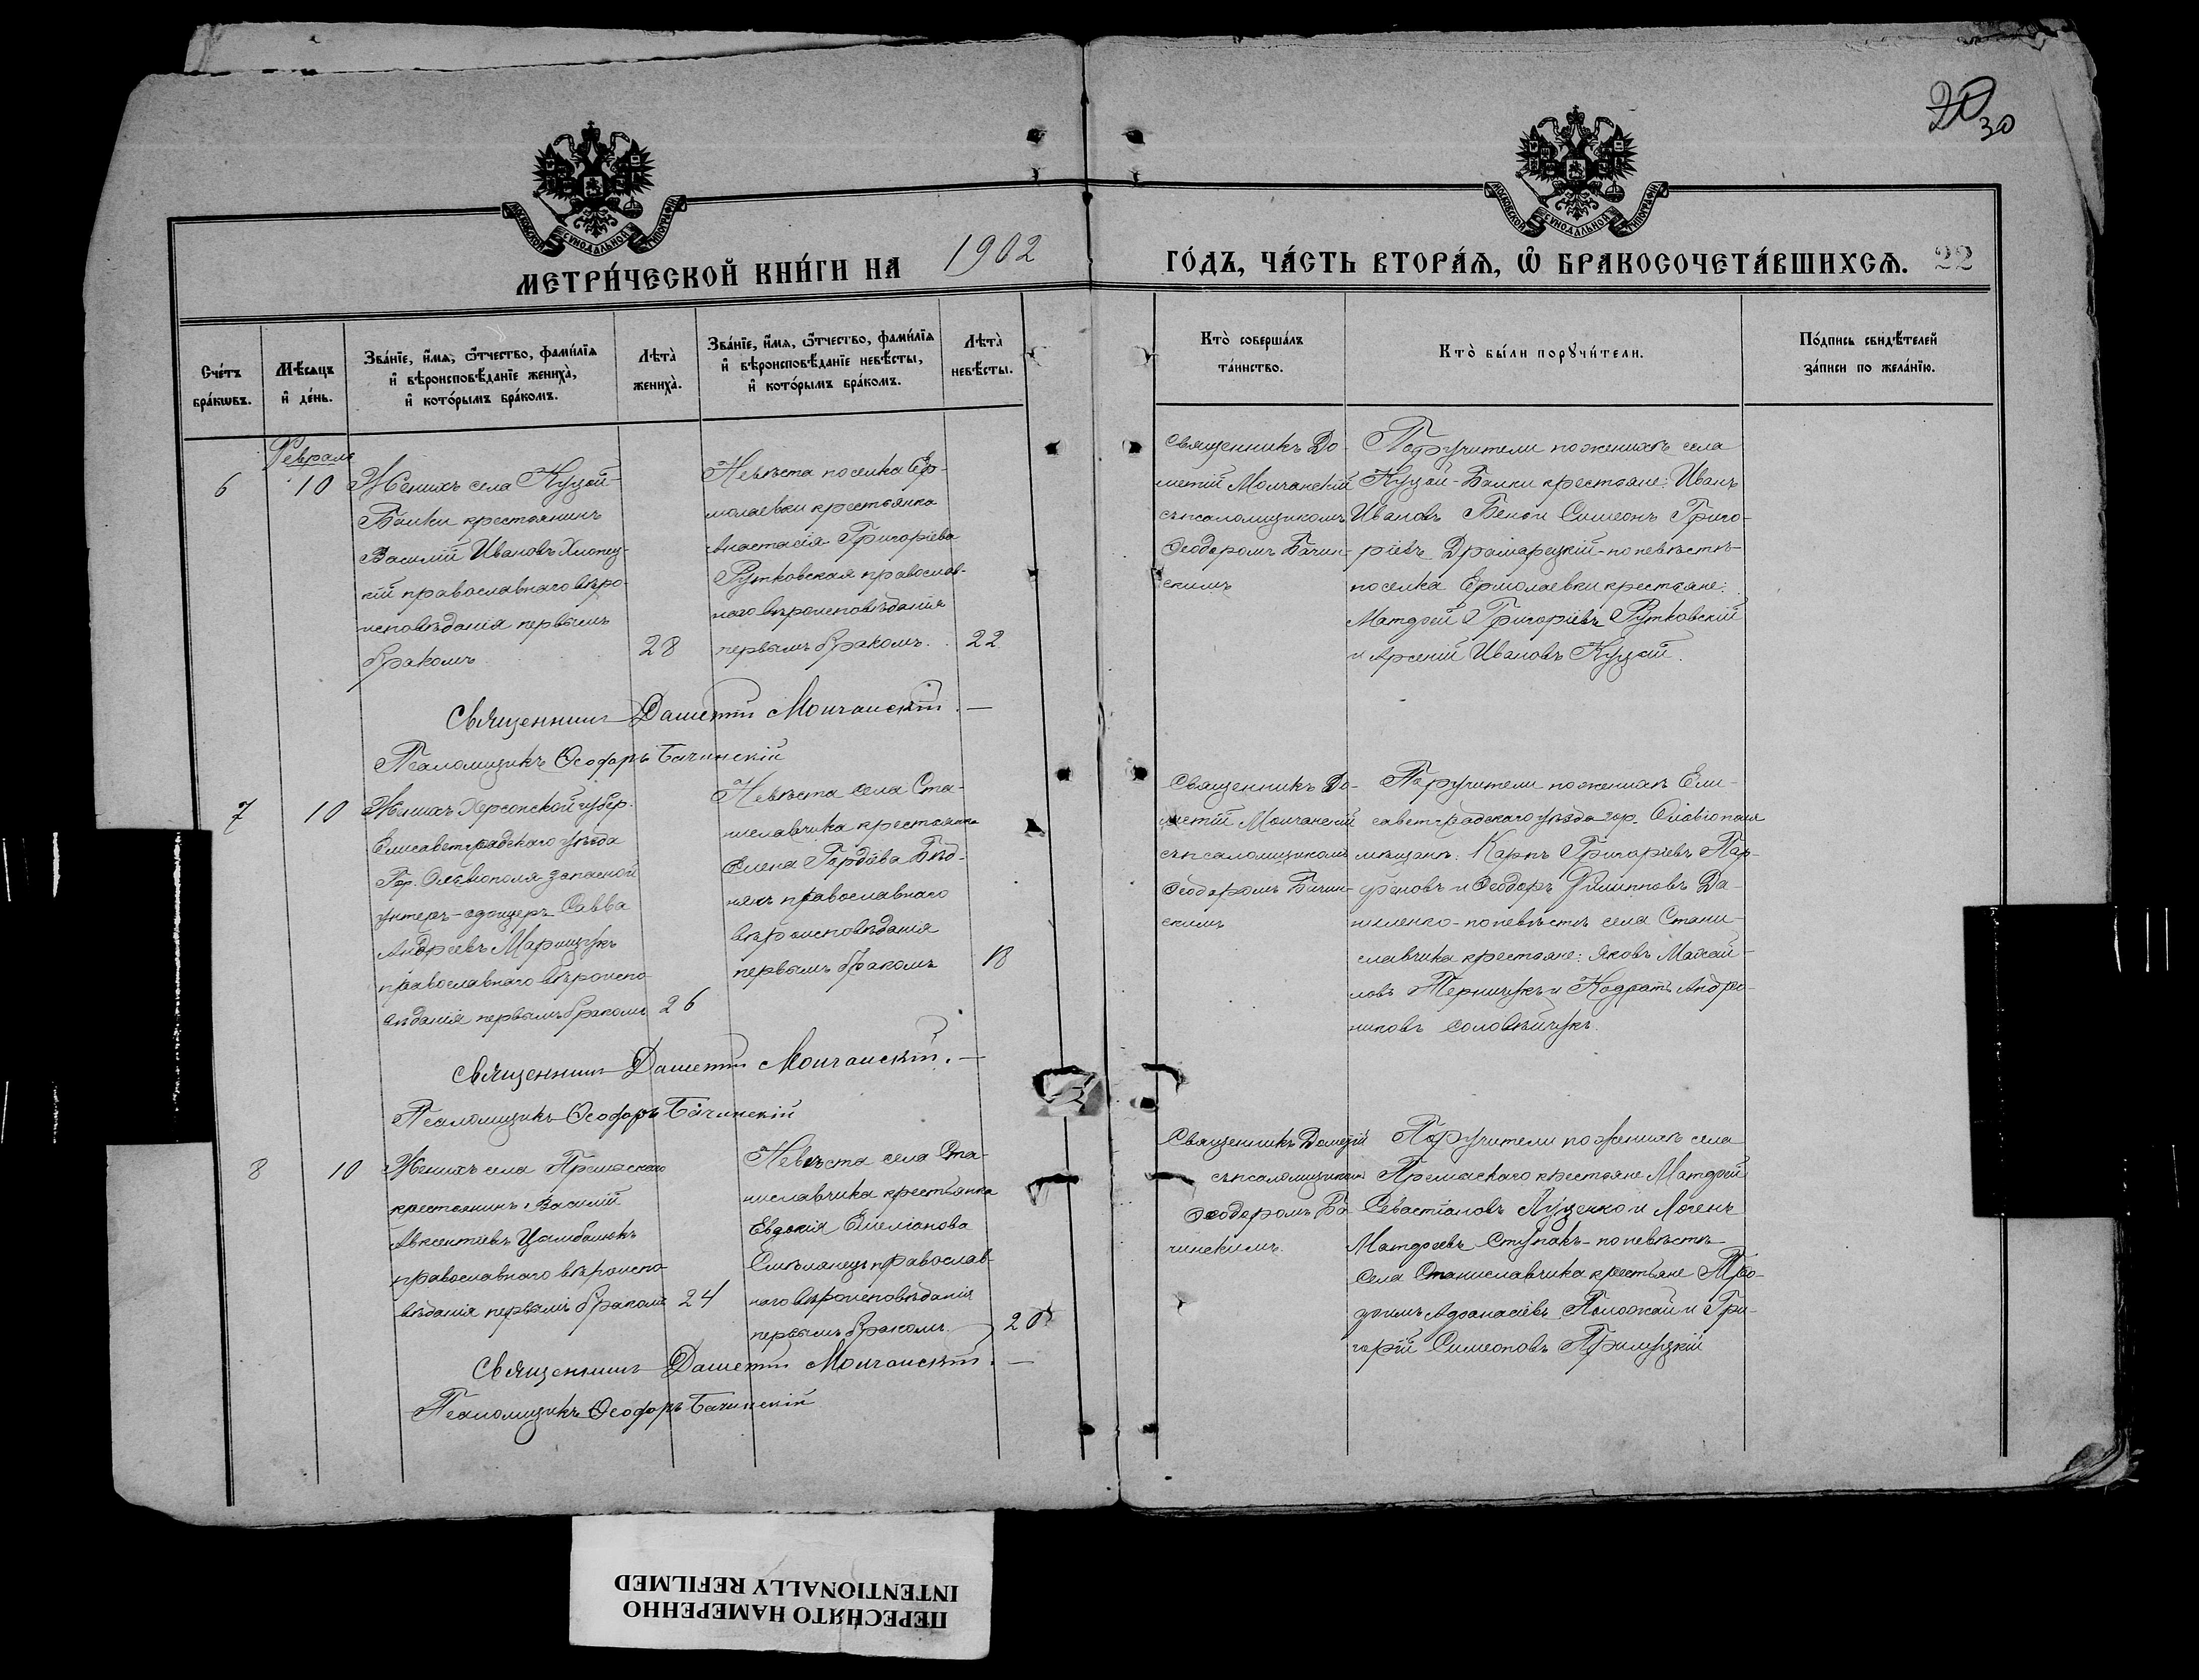 20
30
МОСКОВСКОЙ СѴНОДАЛЬНОЙ ТИПОГРАФІИ
МОСКОВСКОЙ СѴНОДАЛЬНОЙ ТИПОГРАФІИ
МЕТРИ́ЧЕСКОЙ КНИ́ГИ НА 1902 ГО́ДЪ, ЧА́СТЬ ВТОРА́Ѧ, Ѡ҆ БРАКОСОЧЕТА́ВШИХСѦ. 22
Сче́тъ
бра́кѡвъ.
Мѣ́сѧцъ
и҆ де́нь.
Зва́нїе, и҆́мѧ, ѻ҆́тчество, фами́лїѧ
и҆ вѣроисповѣ́данїе женихà,
и҆ кото́рымъ бра́комъ.
Лѣтà
женихà.
Зва́нїе, и҆́мѧ, ѻ҆́тчество, фами́лїѧ
и҆ вѣроисповѣ́данїе невѣ́сты,
и҆ кото́рымъ бра́комъ.
Лѣтà
невѣ́сты.
Ктò соверша́лъ
та́инство.
Ктò бы́ли порꙋчи́тели.
По́дпись свидѣ́телей
за́писи по жела́нїю.
Февраль
6
10
Женихъ села Куцой-
Балки крестьянинъ
Василій Ивановъ Хлопец-
кій православнаго вѣро-
исповѣданія первымъ
бракомъ
28
Невѣста поселка Ер-
молаевки крестьянка
Анастасія Григоріева
Рутковская православ-
наго вѣроисповѣданія
первымъ бракомъ.
22
Священникъ До-
метій Молчанскій
съ псаломщикомъ
Ѳеодоромъ Бачин-
скимъ
Поручители по женихѣ села
Куцой-Балки крестьяне: Иванъ
Ивановъ Симеонъ Григо-
ріевъ по невѣстѣ
поселка Ермолаевки крестьяне:
Матфей Григоріевъ Рутковскій
и Арсеній Ивановъ Куцай.
Священникъ Дометій Молчанскій.—
Псаломщикъ Ѳеодоръ Бачинскій
7
10
Женихъ Херсонской губер.
Елисаветградскаго уѣзда
Гор. Ольвіополя запасной
унтеръ-офицеръ Савва
Андреевъ Марищукъ
православнаго вѣроиспо-
вѣданія первымъ бракомъ
26
Невѣста села Ста-
ниславчика крестьянка
Елена Гордіева Бѣд-
някъ православнаго
вѣроисповѣданія
первымъ бракомъ
18
Священникъ До-
метій Молчанскій
съ псаломщикомъ
Ѳеодоромъ Бачин-
скимъ
Поручители по женихѣ Ели-
саветградскаго уѣзда гор. Ольвіополя
мѣщане: Карпъ Григоріевъ Пар-
феновъ и Ѳеодоръ Филипповъ Да-
ниленко - по невѣстѣ села Стани-
славчика крестьяне: Яковъ Михай-
ловъ и Кодратъ Андро-
никовъ Соловѣйчукъ.
Священникъ Дометій Молчанскій.—
Псаломщикъ Ѳеодоръ Бачинскій
8
10
Женихъ села
крестьянинъ Василій
Авксентіевъ Цымбалюкъ
православнаго вѣроиспо-
вѣданія первымъ бракомъ
24
Невѣста села Ста-
ниславчика крестьянка
Евдокія Емеліанова
Смѣлянецъ православ-
наго вѣроисповѣданія
первымъ бракомъ.
20
Священникъ Дометій
съ псаломщикомъ
Ѳеодоромъ Ба-
чинскимъ.
Поручители по женихѣ села
крестьяне Матфей
Севастіановъ Луценко и Логенъ
Матфеевъ Ступакъ - по невѣстѣ
Села Станиславчика крестьяне Тро-
фимъ Афанасіевъ и Гри-
горій Симеоновъ Прилуцкій
Священникъ Дометій Молчанскій.—
Псаломщикъ Ѳеодоръ Бачинскій
ПЕРЕСНЯТО НАМЕРЕННО
INTENTIONALLY REFILMED